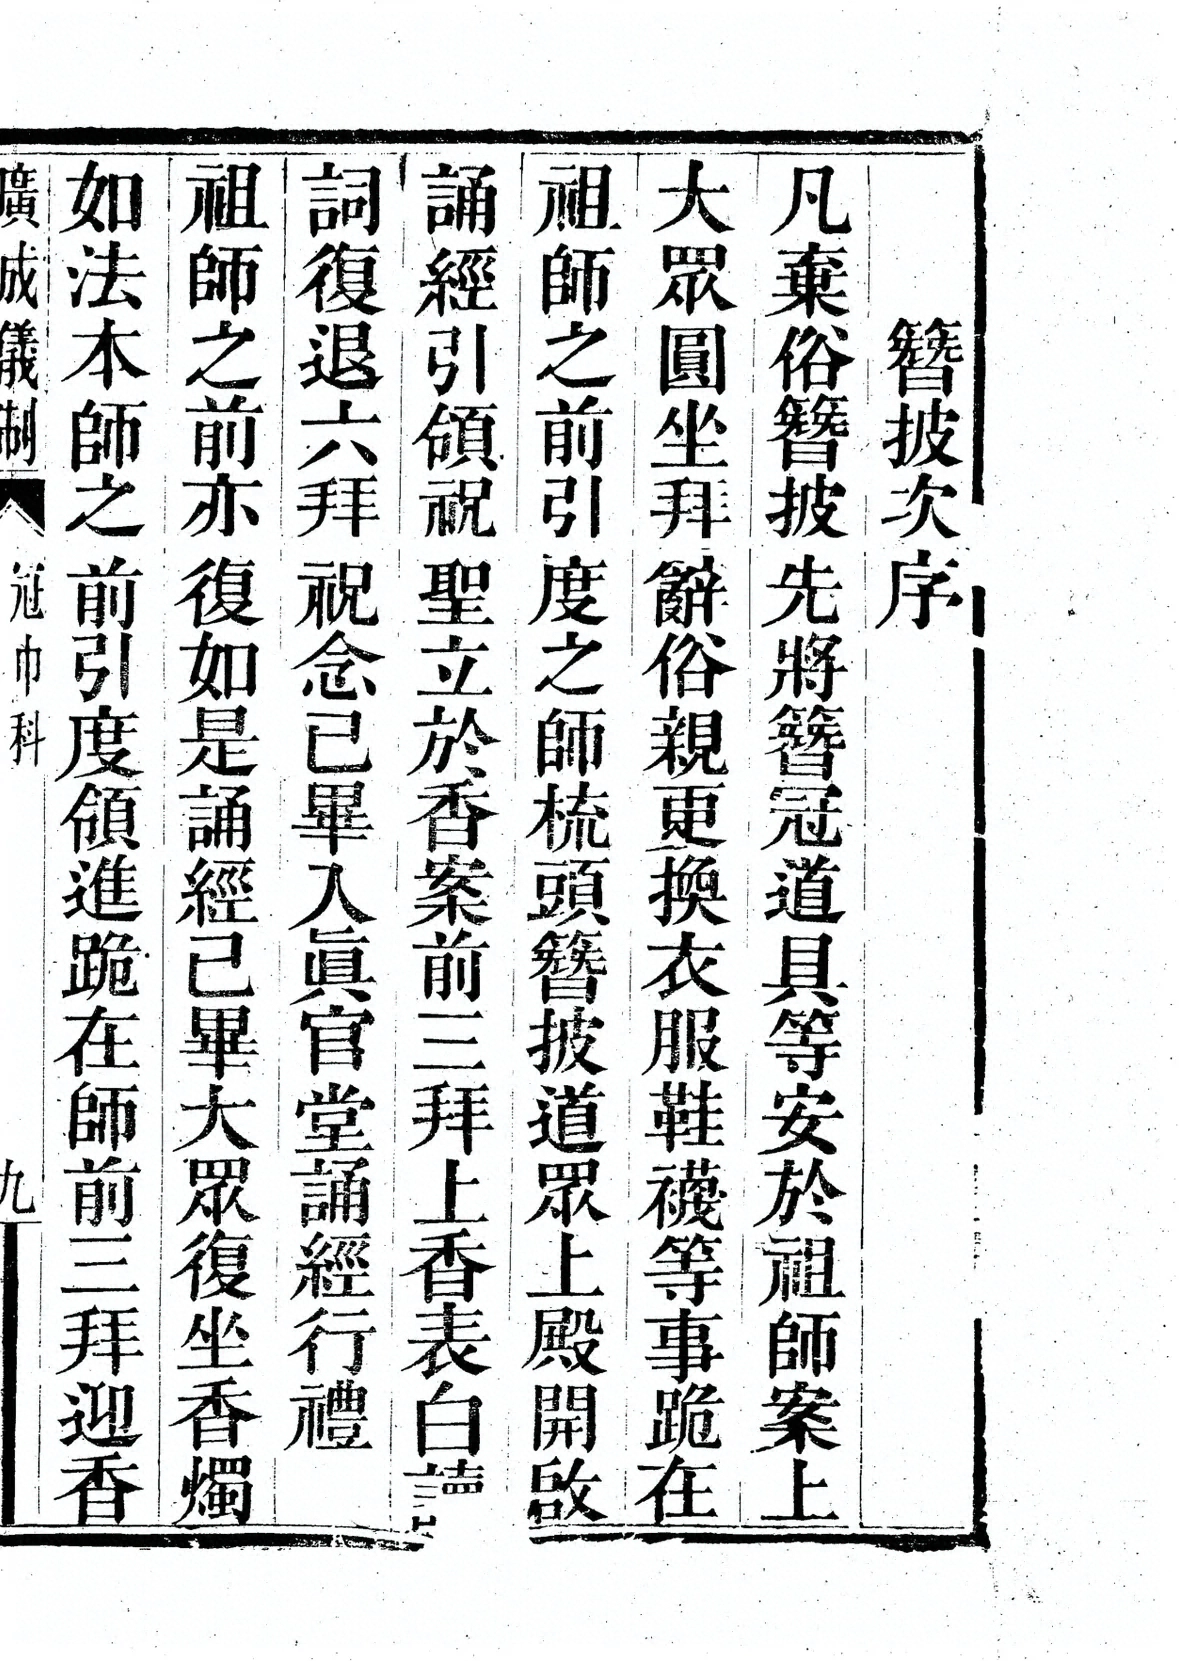 簪披次序
凡棄俗簪披先將簪冠道具等安於祖師案上
大眾圓坐拜辭俗親更換衣服鞋襪等事跪在
祖師之前引度之師梳頭簪披道眾上殿開啟
誦經引領祝聖立於香案前三拜上香表白讀
詞復退六拜祝念已畢入眞官堂誦經行禮
祖師之前亦復如是誦經已畢大眾復坐香燭
如法本師之前引度領進跪在師前三拜迎香
廣成儀制 冠巾科 九